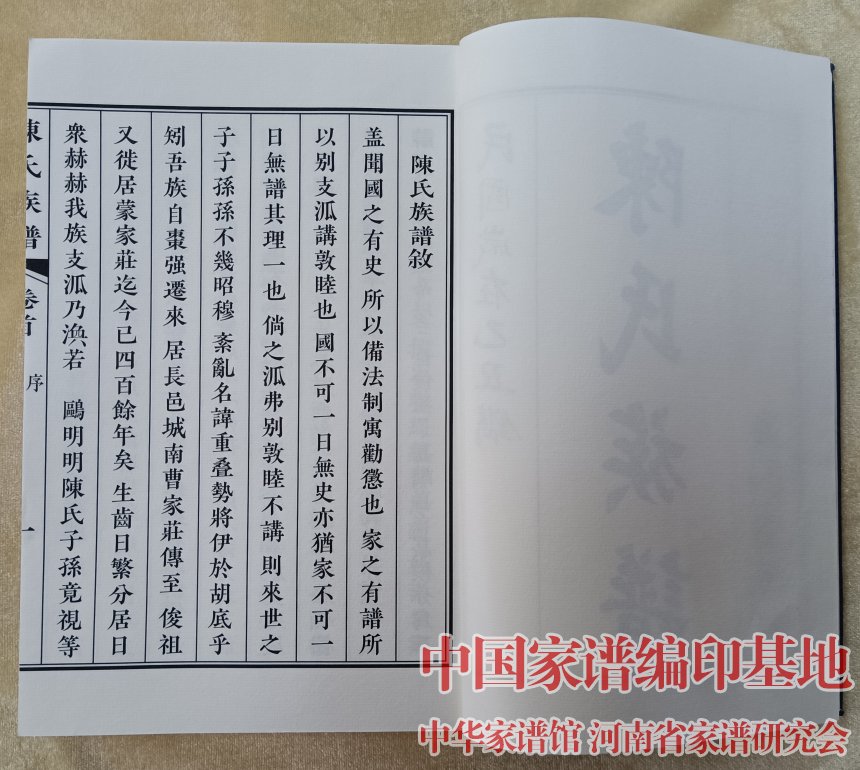 陳氏族譜敘
盖聞國之有史 所以備法制寓勸懲也 家之有譜所
以别支泒講敦睦也 國不可一日無史亦猶家不可一
日無譜其理一也 倘之泒弗别敦睦不講 則來世之
子子孫孫不幾昭穆 紊亂名諱重叠勢將伊於胡底乎
矧吾族自棗强遷來 居長邑城南曹家莊傳至 俊祖
又徙居蒙家莊迄今已四百餘年矣 生齒日繁分居日
衆赫赫我族支泒乃渙若 鷗明明陳氏子孫竟視等
陳氏族譜 卷首 序 一
陳氏族譜
中国家谱编印基地
中华家谱馆 河南省家谱研究会